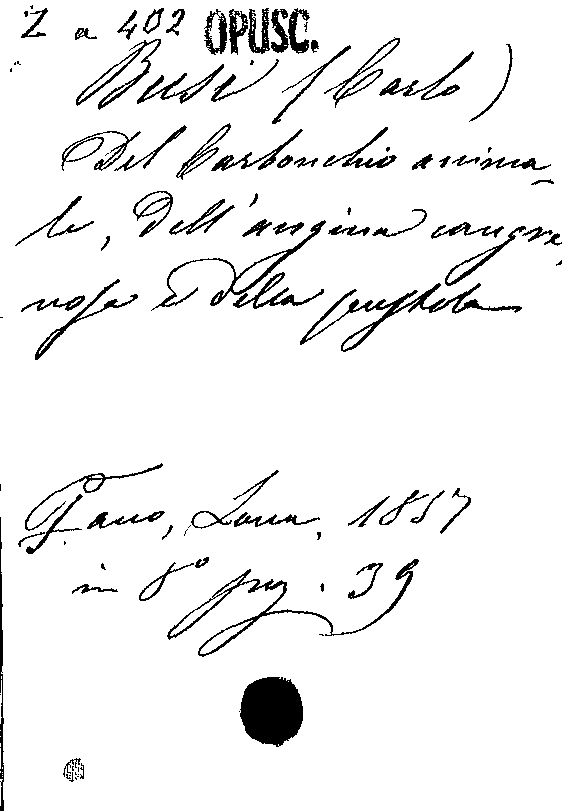 Z a 402 OPUSC.
Busi (Carlo)
Del Carbonchio anima-
le, dell'angina cangre,
nosa e della pustola
Fano, Lana, 1857
in 8° pag. 39